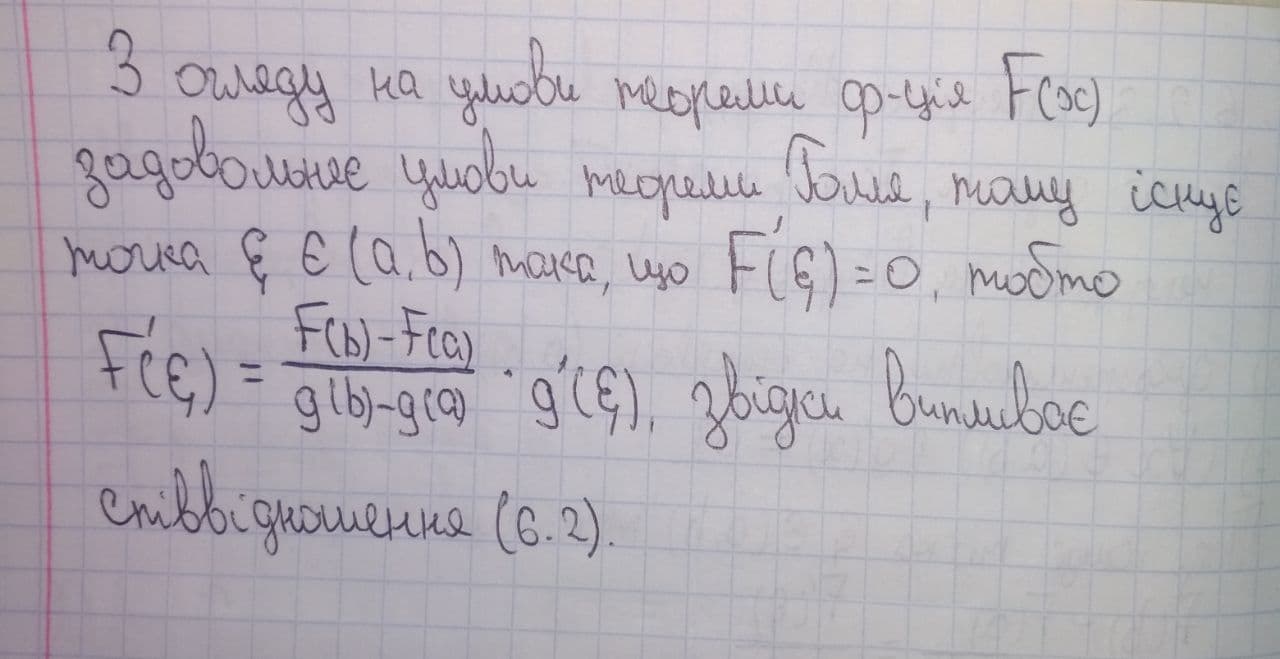 З огляду на умови теореми ф-ція F(x)
задовольняє умови теореми Ролля, тому існує
точка ξ ∈ (a,b) така, що F'(ξ)=0, тобто
F'(ξ) = F(b)-F(a) / g(b)-g(a) · g'(ξ), звідки випливає
співвідношення (6.2).